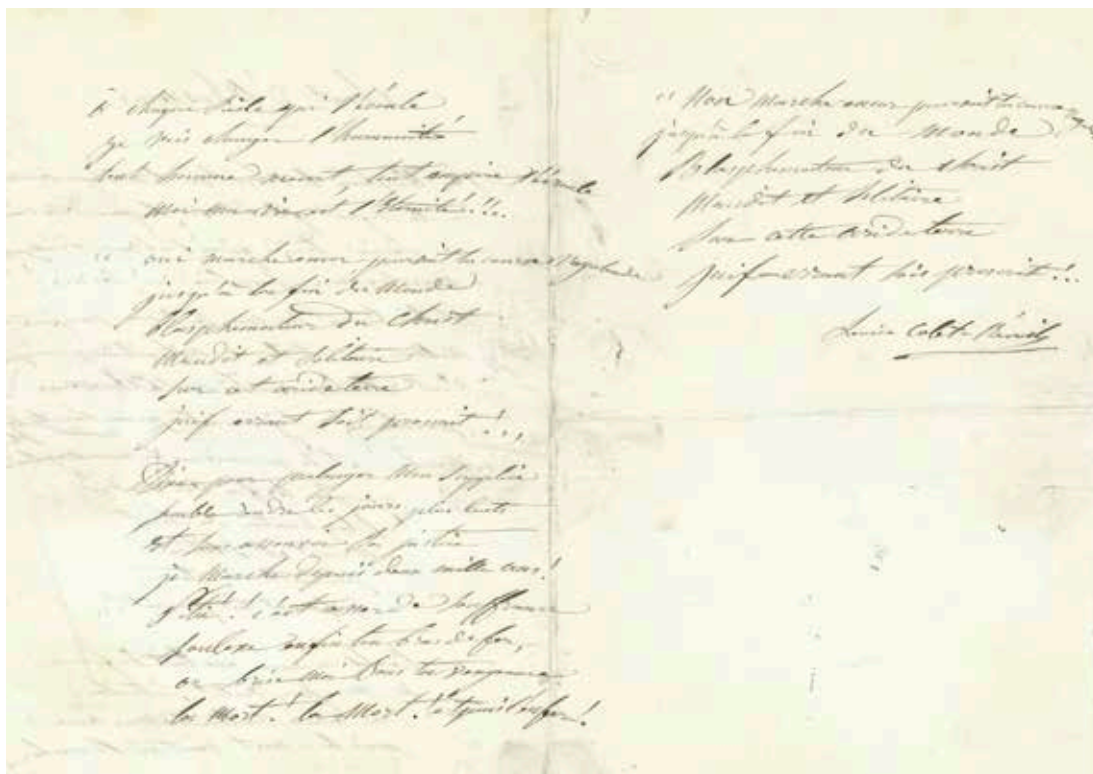 à chaque siècle qui s'écoule
je vois changer l'humanité
tout homme meurt, tout empire s'écroule
moi l'Eternité!!.
" marche poursuit ta course vagabonde
jusqu'à la fin du Monde
blasphémateur du Christ
Maudit et solitaire
sur cet aride terre
juif errant sois proscrit!..
Dieu pour prolonger Mon supplice
semble rendre les jours plus lents
et pour assouvir sa justice
je Marche depuis deux mille ans!
c'est assez de souffrance
soulève enfin ton bras de fer,
ou brise Moi dans ta vengeance
la Mort! la Mort!
" Non Marche poursuit ta course
jusqu'à la fin du Monde
Blasphémateur du Christ
Maudit et solitaire
sur cette aride terre
juif errant sois proscrit!..
Louise Colet Révoil